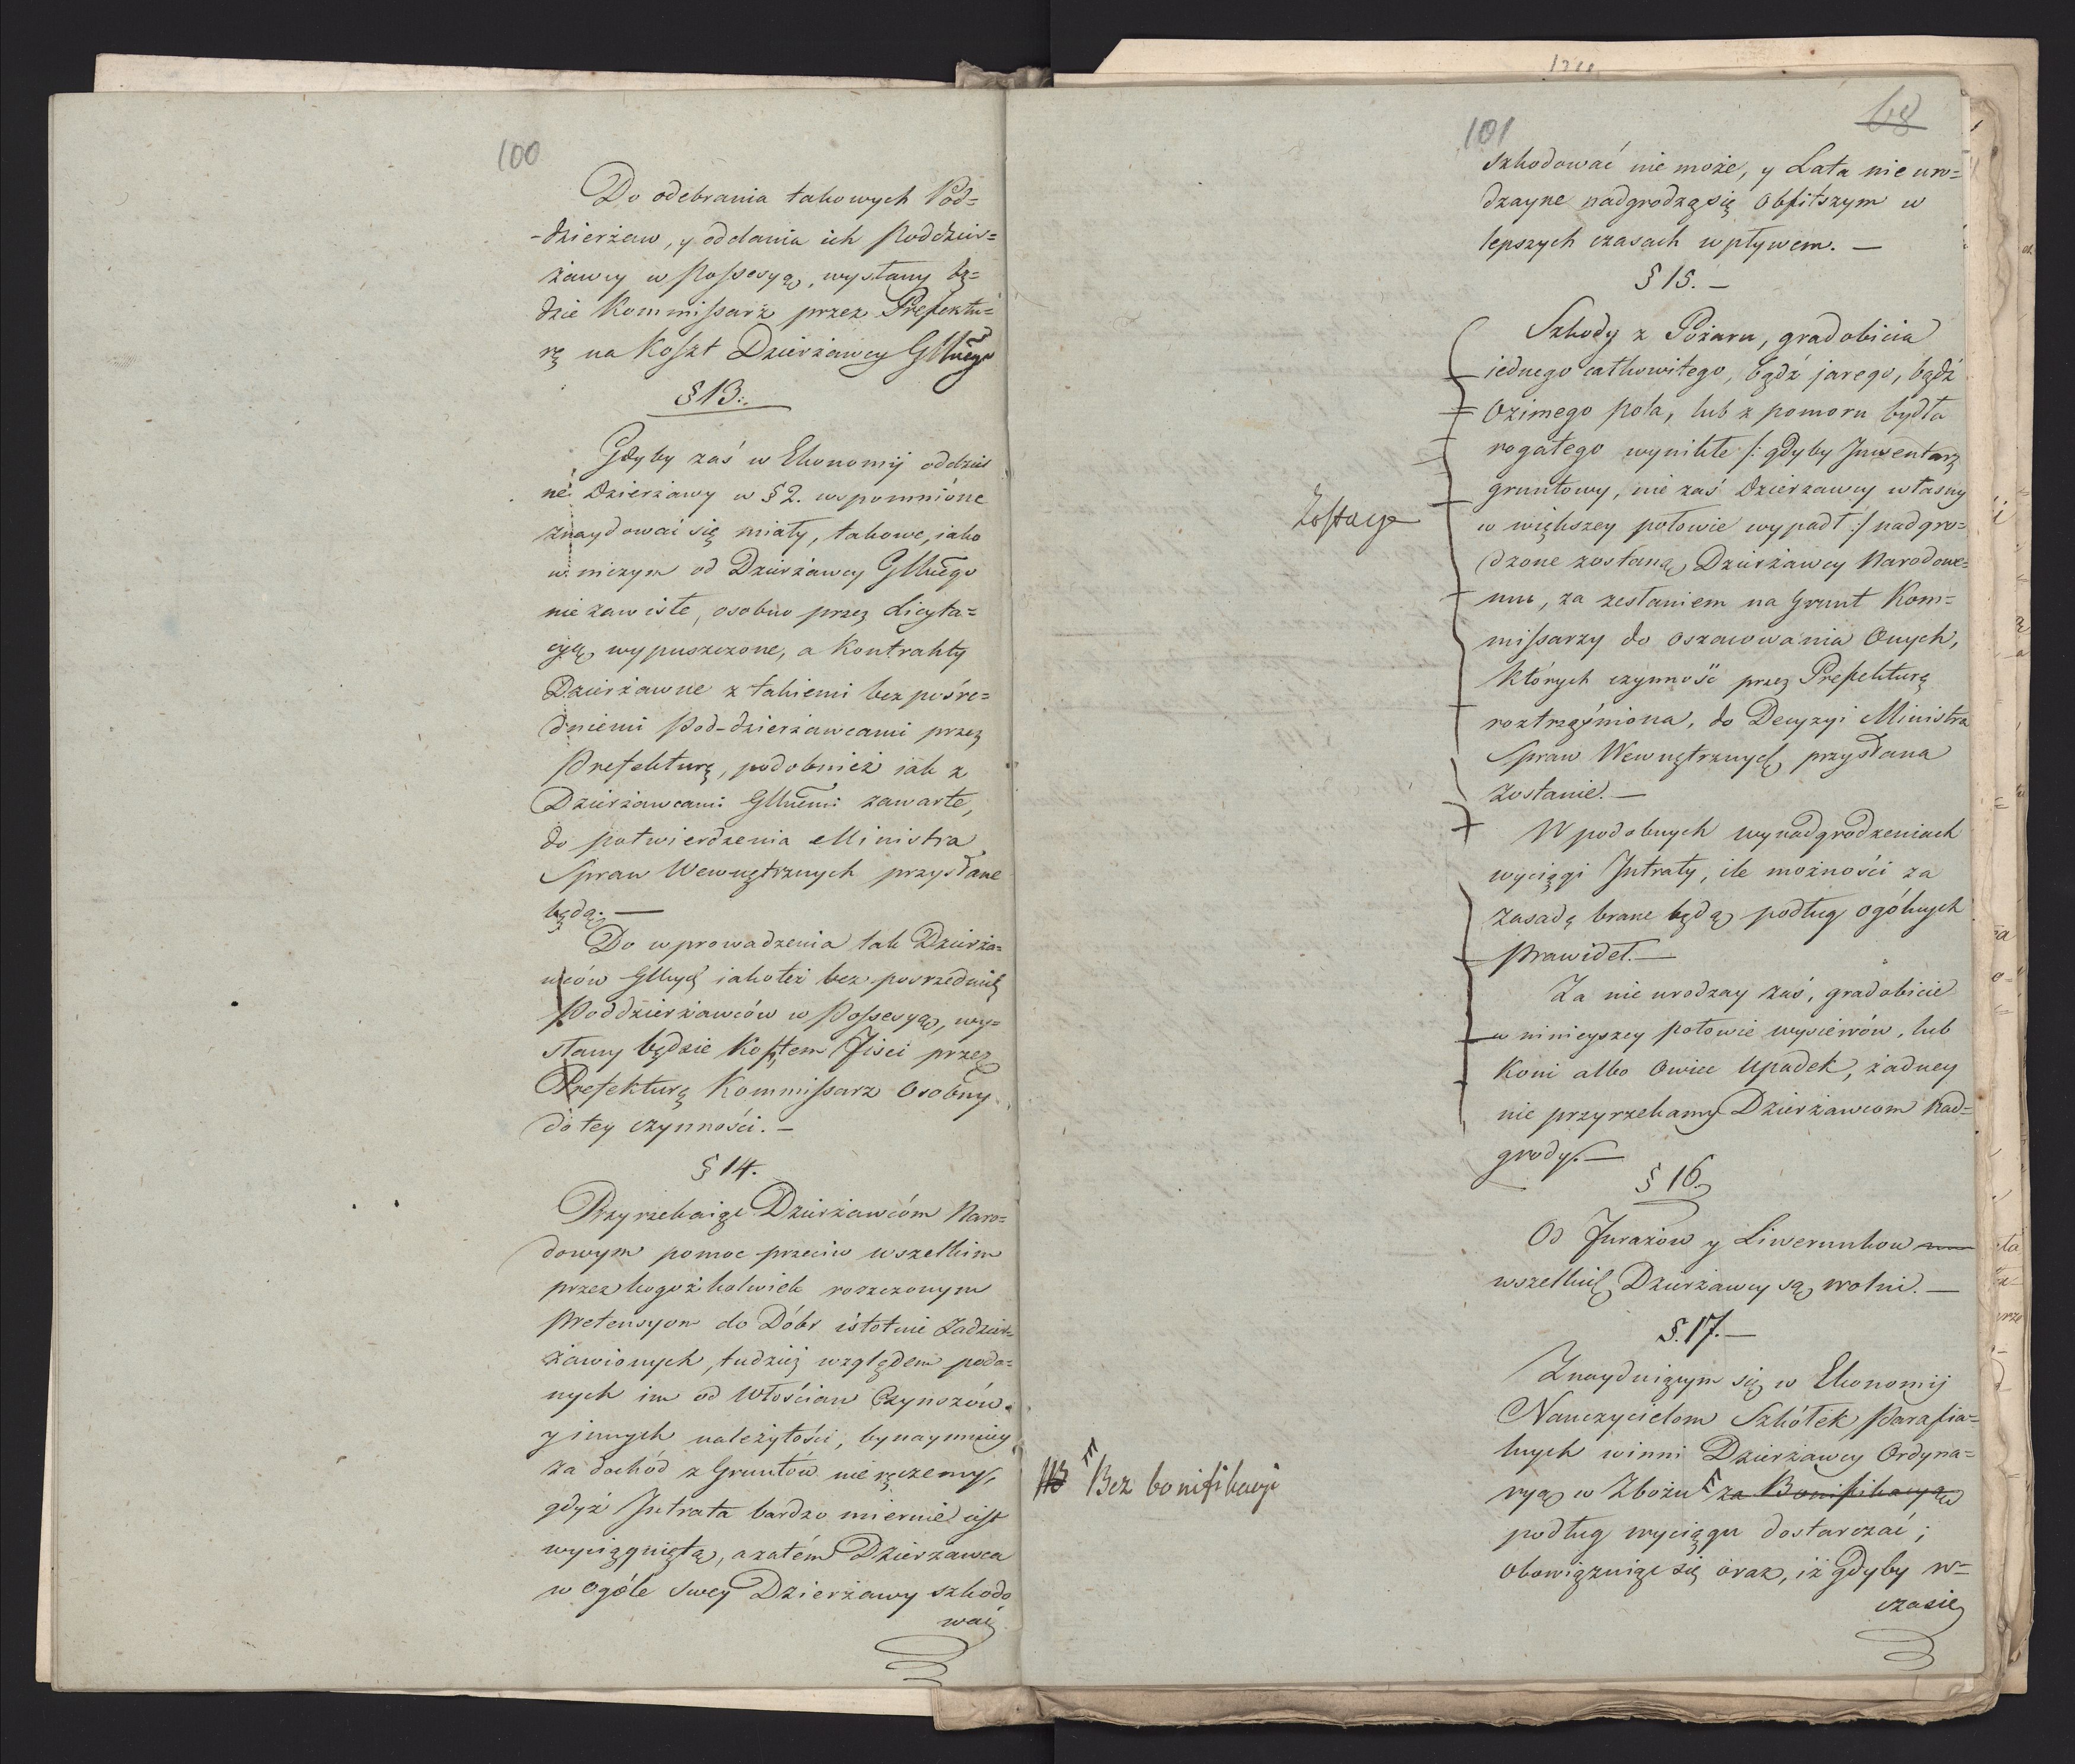 100
Do odebrania takowych Pod=
-dzierżaw, y oddania ich Poddzier=
żawcy w Possesyą, wysłany bę=
dzie Kommissarz przez Prefektu=
rę na Koszt Dzierżawcy Gllnego
§ 13.
Gdyby zaś w Ekonomij oddziel
ne Dzierżawy w § 2. wspomnione
znaydować się miały, takowe, iako
w niczym od Dzierżawcy Gllnego
nie zawisłe, osobno przez Licyta=
cyą wypuszczone, a Kontrakty
Dzierżawne z takiemi bezpośre=
dniemi Pod-dzierżawcami przez
Prefekturę, podobnież iak z
Dzierżawcami Gllnemi zawarte,
do potwierdzenia Ministra
Spraw Wewnętrznych przysłane
będą. —
Do wprowadzenia tak Dzierża=
wców Gllnych iakoteż bez posrzednich
Poddzierżawców w Possesyą, wy=
słany będzie Kosztem Jisci przez
Prefekturę Kommissarz Osobny
do tey czynności. —
§ 14.
Przyrzekaiąc Dzierżawcóm Naro=
dowym pomoc przeciw wszelkim
przez kogoż kolwiek roszczonym
Pretensyom do Dóbr istotnie Zadzier=
żawionych, tudzież względem poda=
nych im od Włościan Czynszów
y innych należytości, bynaymniey
za dochód z Gruntów nie ręczemy,
gdyż Intrata bardzo miernie iest
wyciągniętą, a zatém Dzierzawca
w ogóle swey Dzierżawy szkodo
wać
101
68
szkodować nie może, y Lata nie uro=
dzayne nadgrodzą się obfitszym w
lepszych czasach wpływem. —
§ 15. —
Szkody z Pożaru, gradobicia
iednego całkowitego, bądź jarego, bądź
Ozimego pola, lub z pomoru bydła
rogatego wynikłe /: gdyby Inwentarz
gruntowy, nie zaś Dzierzawcy własny
w większey połowie wypadł :/ nadgro=
dzone zostaną Dzierżawcy Narodowe=
mu, za zesłaniem na Grunt Kom=
missarzy do oszacowania Onych,
których czynność przez Prefekturę
roztrząśniona, do Decyzyi Ministra
Spraw Wewnętrznych przysłana
zostanie. —
Zostaje
W podobnych wynadgrodzeniach
wyciągi Intraty, ile możności za
zasadę brane będą podług ogólnych
Prawideł. —
Za nie urodzay zaś, gradobicie
w mnieyszey połowie wysiewów, lub
Koni albo Owiec Upadek, żadney
nie przyrzekamy Dzierżawcom Nad=
grody. —
§ 16.
Od Furażów y Liwerunkow
wszelkich Dzierżawcy są wolni. —
§. 17. —
Znayduiącym się w Ekonomij
Nauczycielom Szkółek Parafia=
lnych winni Dzierżawcy Ordyna=
ryą w Zbożu za Bonifikacyą
Bez bonifikacyi
podług wyciągu dostarczać;
obowiązuiąc się oraz, iż gdyby w=
czasie